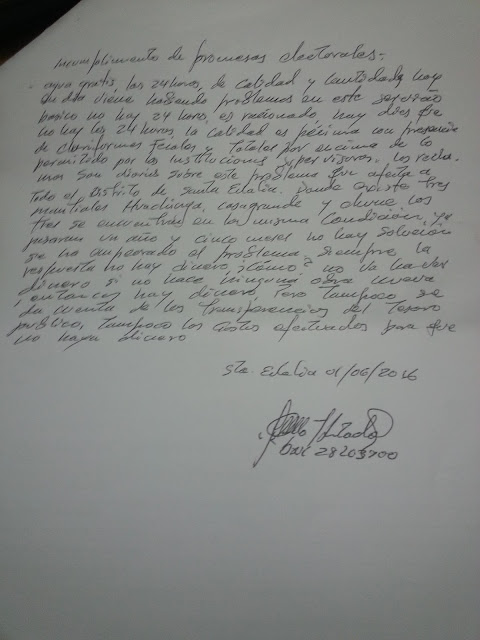 Incumplimiento de promesas electorales.-
. agua gratis, las 24 horas, de calidad y cantidad, hoy
en dia viene habiendo problemas en este servicio
basico no hay 24 horas, es racionado, hay dias que
no hay las 24 horas, la calidad es pésima con presencia
de coliformes fecales y totales por encima de lo
permitido por las instituciones supervisoras, los recla-
mos son diarios sobre este problema que afecta a
todo el Distrito de Santa Eulalia. Donde existe tres
mantiales casagrande y los
tres se encuentran en la misma condición, ya
pasaron un año y cinco meses no hay solución
se ha empeorado el problema, siempre la
respuesta no hay dinero ¿cómo? no va haber
dinero si no hace ninguna obra nueva
entonces hay dinero, pero tampoco se
da cuenta de las transferencias del tesoro
público, tampoco los gastos efectuados para que
no haya dinero
Sta. Eulalia 01/06/2016